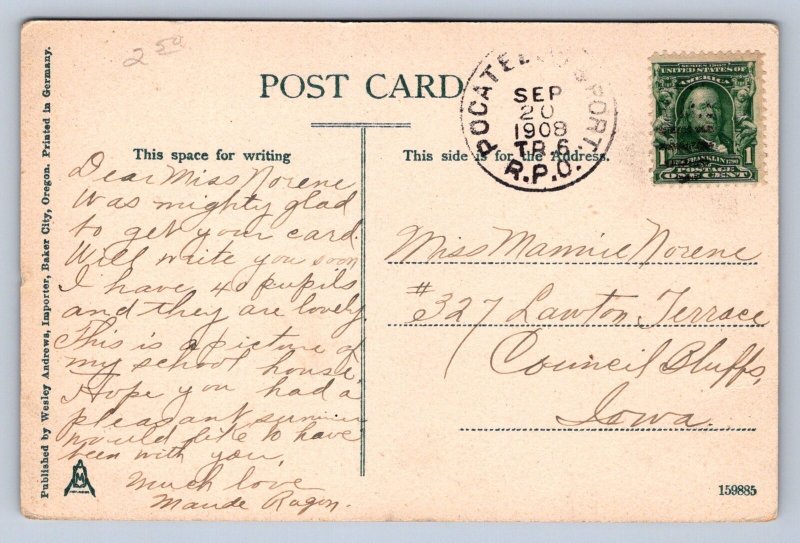 2 50
POST CARD
POCATEL PORT.
SEP
20
1908
TR.6.
R.P.O.
SERIES 1902
UNITED STATES OF
AMERICA
1 FRANKLIN 1
POSTAGE
ONE CENT
This space for writing
This side is for the Address.
Dear Miss Norene
Was mighty glad
to get your card.
Will write you soon
I have 40 pupils
and they are lovely.
This is a picture of
my school house.
Hope you had a
pleasant summer
would like to have
been with you.
Much love
Maude Ragon.
Miss Mannie Norene
#327 Lawton Terrace
Council Bluffs,
Iowa.
Published by Wesley Andrews, Importer, Baker City, Oregon. Printed in Germany.
M
159885